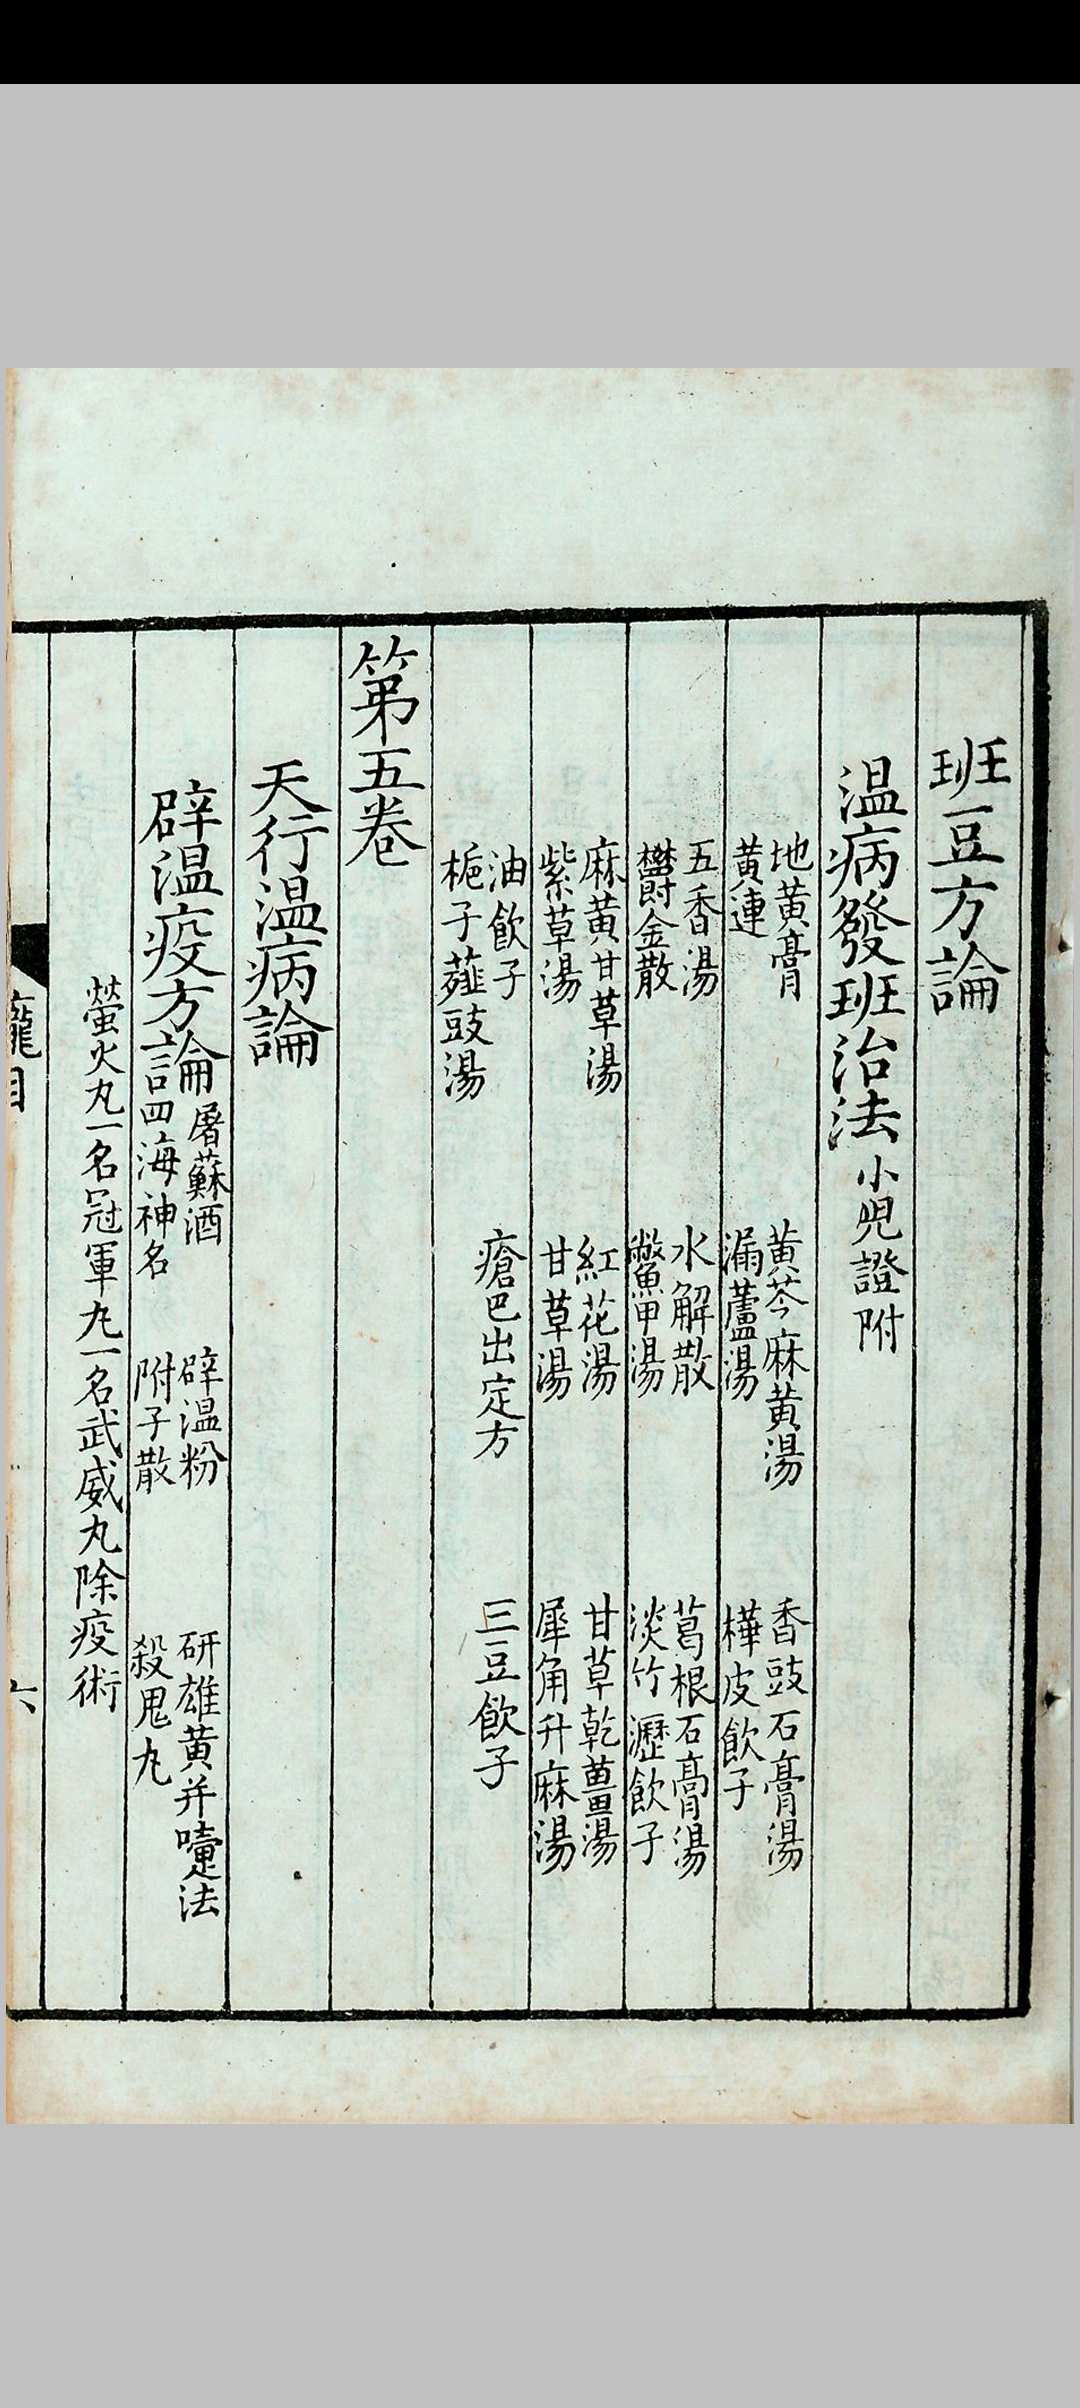 班豆方論
温病發班治法小兒證附
地黄膏 黄芩麻黄湯 香豉石膏湯
黄連 漏蘆湯 樺皮飲子
五香湯 水解散 葛根石膏湯
欝金散 鱉甲湯 淡竹瀝飲子
麻黄甘草湯 紅花湯 甘草乾薑湯
紫草湯 甘草湯 犀角升麻湯
油飲子 瘡巴出定方 三豆飲子
梔子薤豉湯
第五卷
天行温病論
辟温疫方論
屠蘇酒 辟温粉 研雄黄并嚏法
四海神名 附子散 殺鬼丸
螢火丸一名冠軍丸一名武威丸除疫術
目
六